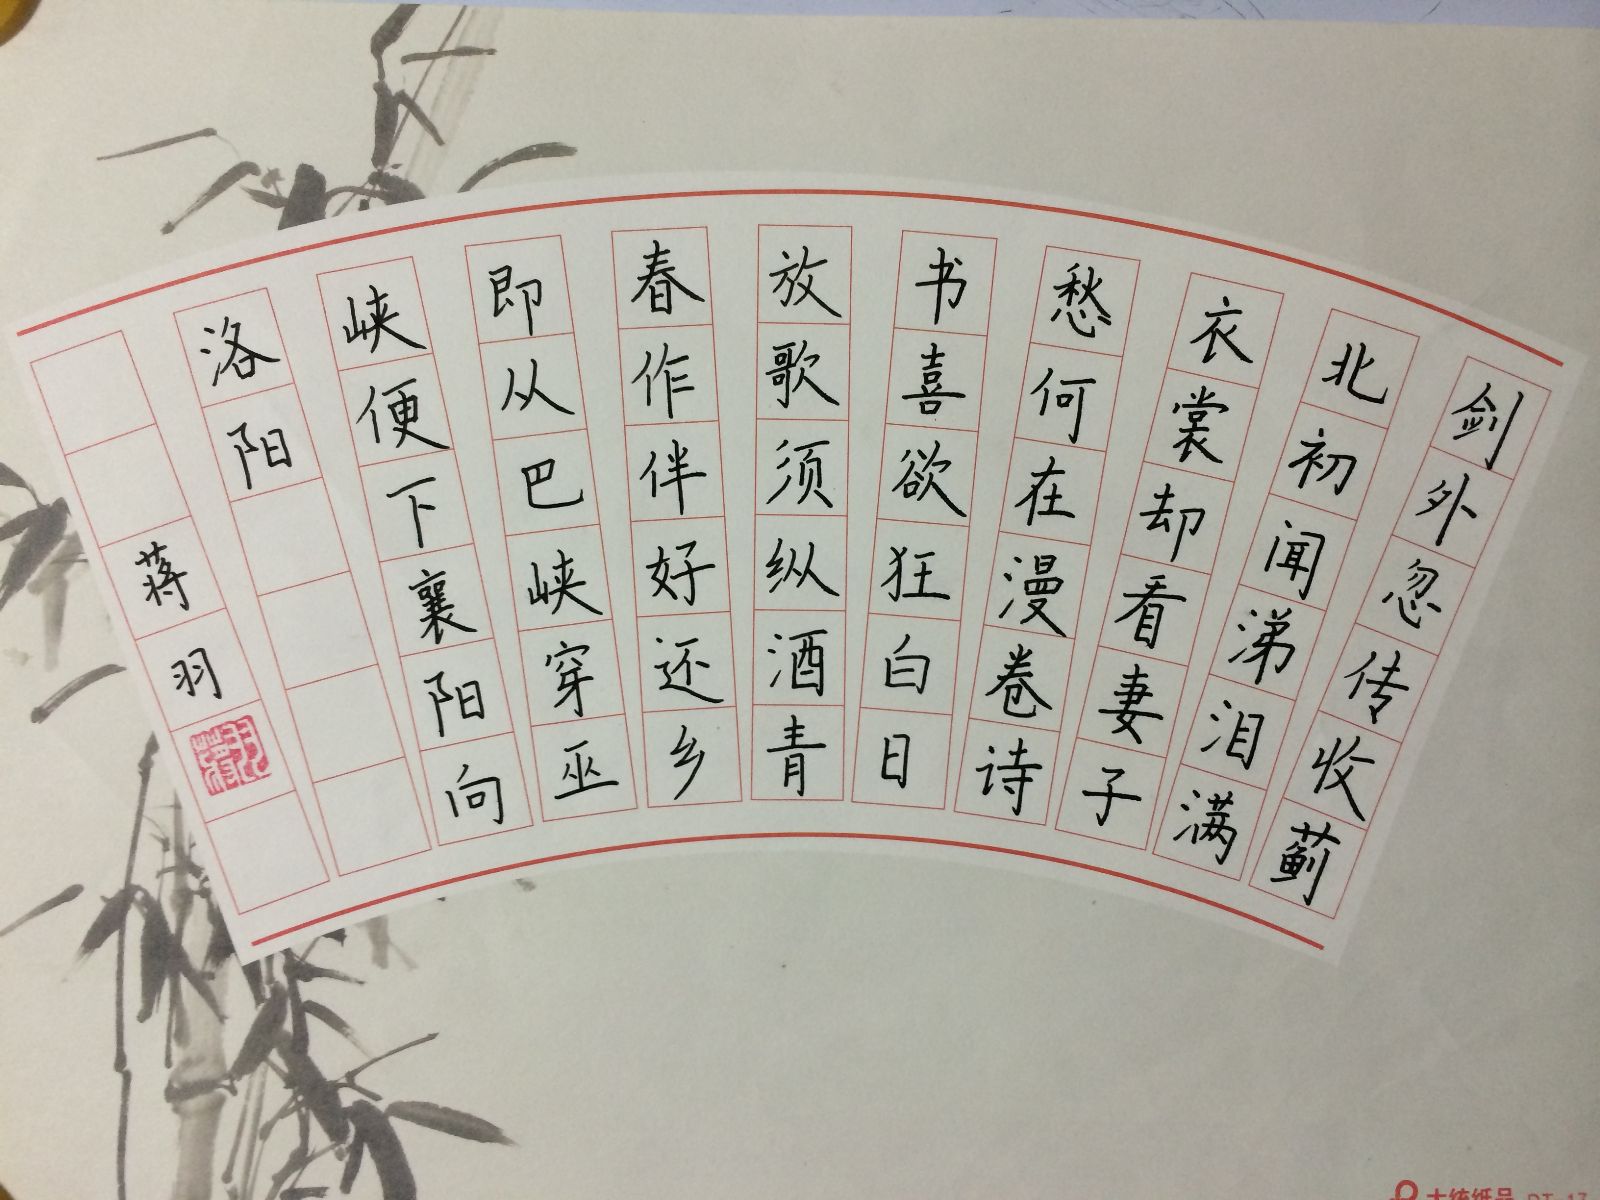 剑外忽传收蓟
北初闻涕泪满
衣裳却看妻子
愁何在漫卷诗
书喜欲狂白日
放歌须纵酒青
春作伴好还乡
即从巴峡穿巫
峡便下襄阳向
洛阳
蒋羽